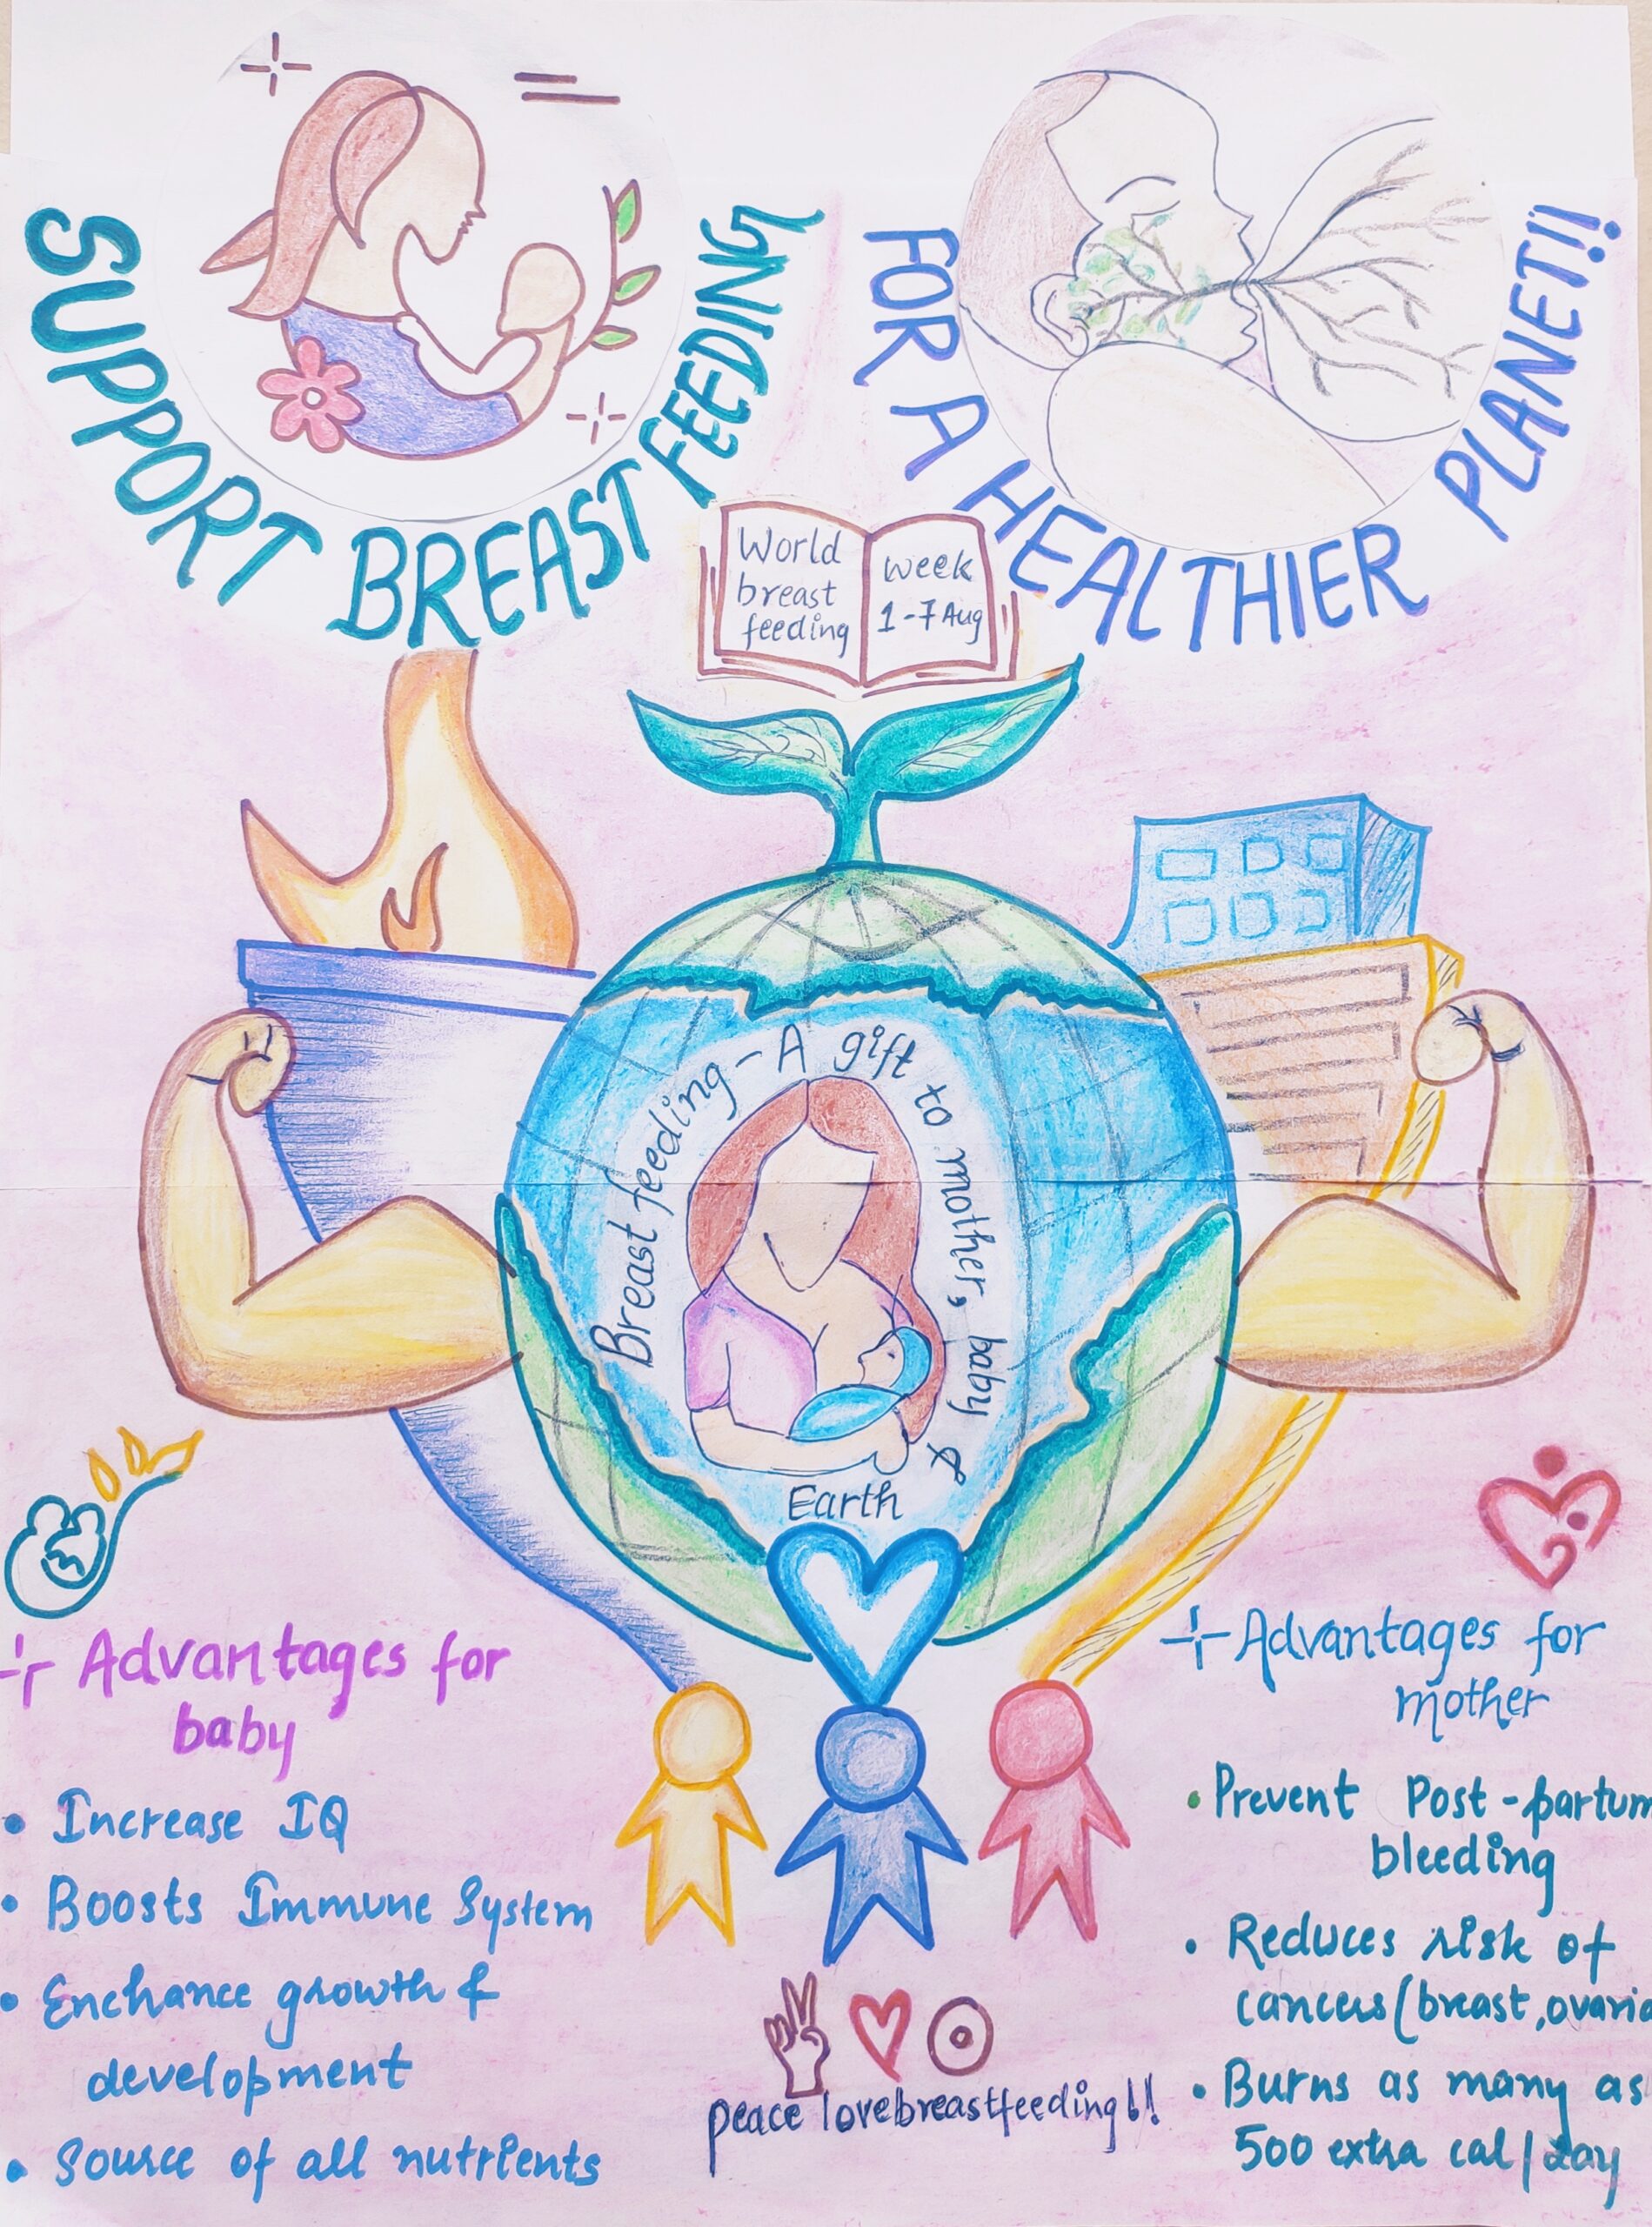 SUPPORT BREAST FEEDING
FOR A HEALTHIER PLANET!!
World
breast
feeding
week
1-7 Aug
Breast feeding - A gift to mother, baby &
Earth
Advantages for
baby
• Increase IQ
• Boosts Immune System
• Enchance growth &
development
• Source of all nutrients
Advantages for
mother
• Prevent Post-partum
bleeding
• Reduces risk of
cancers (breast, ovaria
• Burns as many as
500 extra cal/day
peace love breastfeeding!!